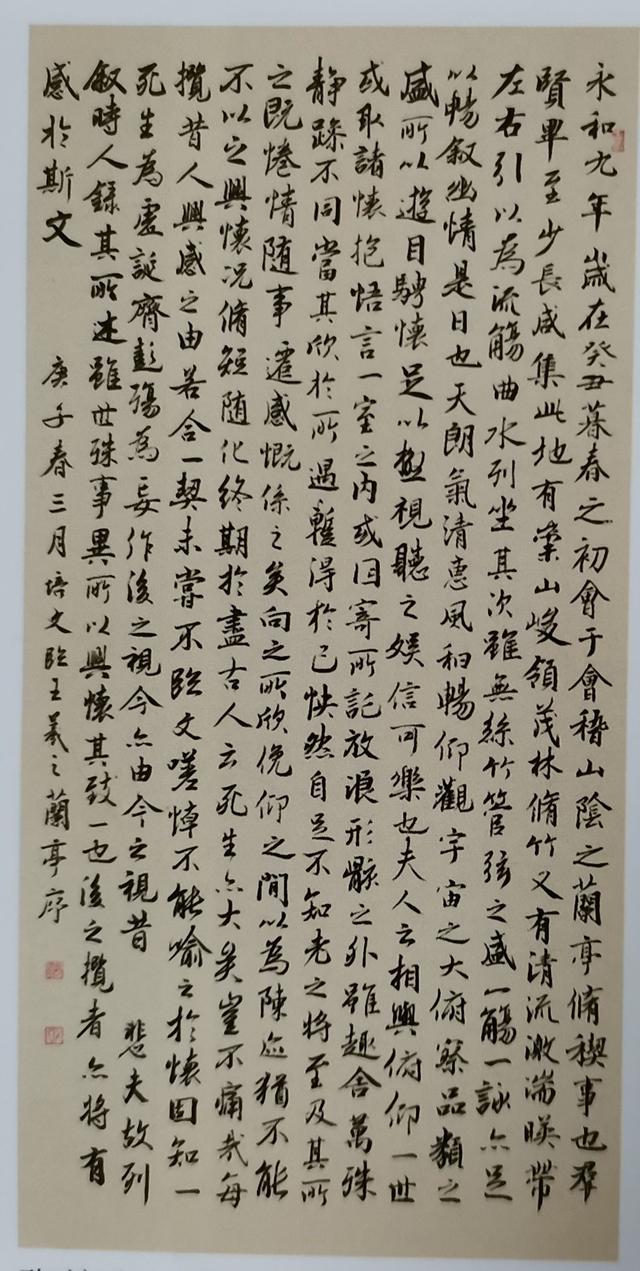 永和九年歲在癸丑暮春之初會于會稽山陰之蘭亭脩稧事也羣
賢畢至少長咸集此地有崇山峻領茂林脩竹又有清流激湍暎帶
左右引以為流觴曲水列坐其次雖無絲竹管弦之盛一觴一詠亦足
以暢敘幽情是日也天朗氣清惠風和暢仰觀宇宙之大俯察品類之
盛所以遊目騁懷足以極視聽之娛信可樂也夫人之相與俯仰一世
或取諸懷抱悟言一室之內或因寄所託放浪形骸之外雖趣舍萬殊
靜躁不同當其欣於所遇暫得於己怏然自足不知老之將至及其所
之既惓情隨事遷感慨係之矣向之所欣俛仰之閒以為陳迹猶不能
不以之興懷況脩短隨化終期於盡古人云死生亦大矣豈不痛哉每
攬昔人興感之由若合一契未嘗不臨文嗟悼不能喻之於懷固知一
死生為虛誕齊彭殤為妄作後之視今亦由今之視昔 悲夫故列
敘時人錄其所述雖世殊事異所以興懷其致一也後之攬者亦將有
感於斯文 庚子春三月培文臨王羲之蘭亭序